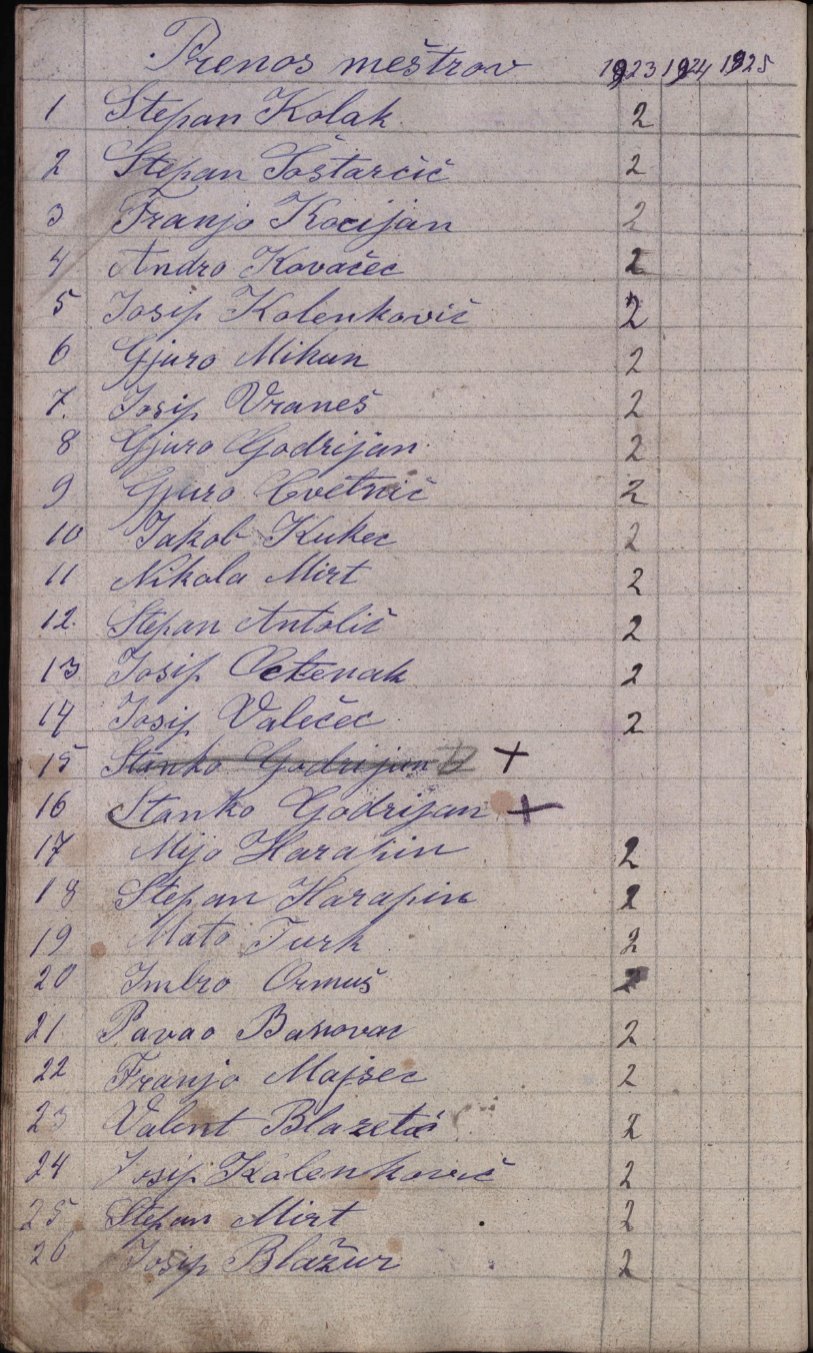 Prenos meštrov 1923 1924 1925
1 Stepan Kolak 2
2 Stepan Šoštarčić 2
3 Franjo Kocijan 2
4 Andro Kovačec 2
5 Josip Kolenković 2
6 Gjuro Mikun 2
7. Josip Vraneš 2
8 Gjuro Godrijan 2
9 Gjuro Cvetnić 2
10 Jakob Kukec 2
11 Nikola Mirt 2
12. Stepan Antolić 2
13 Josip 2
14 Josip Valečec 2
15 Stanko Godrijan +
16 Stanko Godrijan +
17 Mijo Harapin 2
18 Stepan Harapin 2
19 Mato Turk 2
20 Imbro Ormuš 2
21 Pavao Banovac 2
22 Franjo Majsec 2
23 Valent Blazetić 2
24 Josip Kolenković 2
25 Stepan Mirt 2
26 Josip Blažur 2